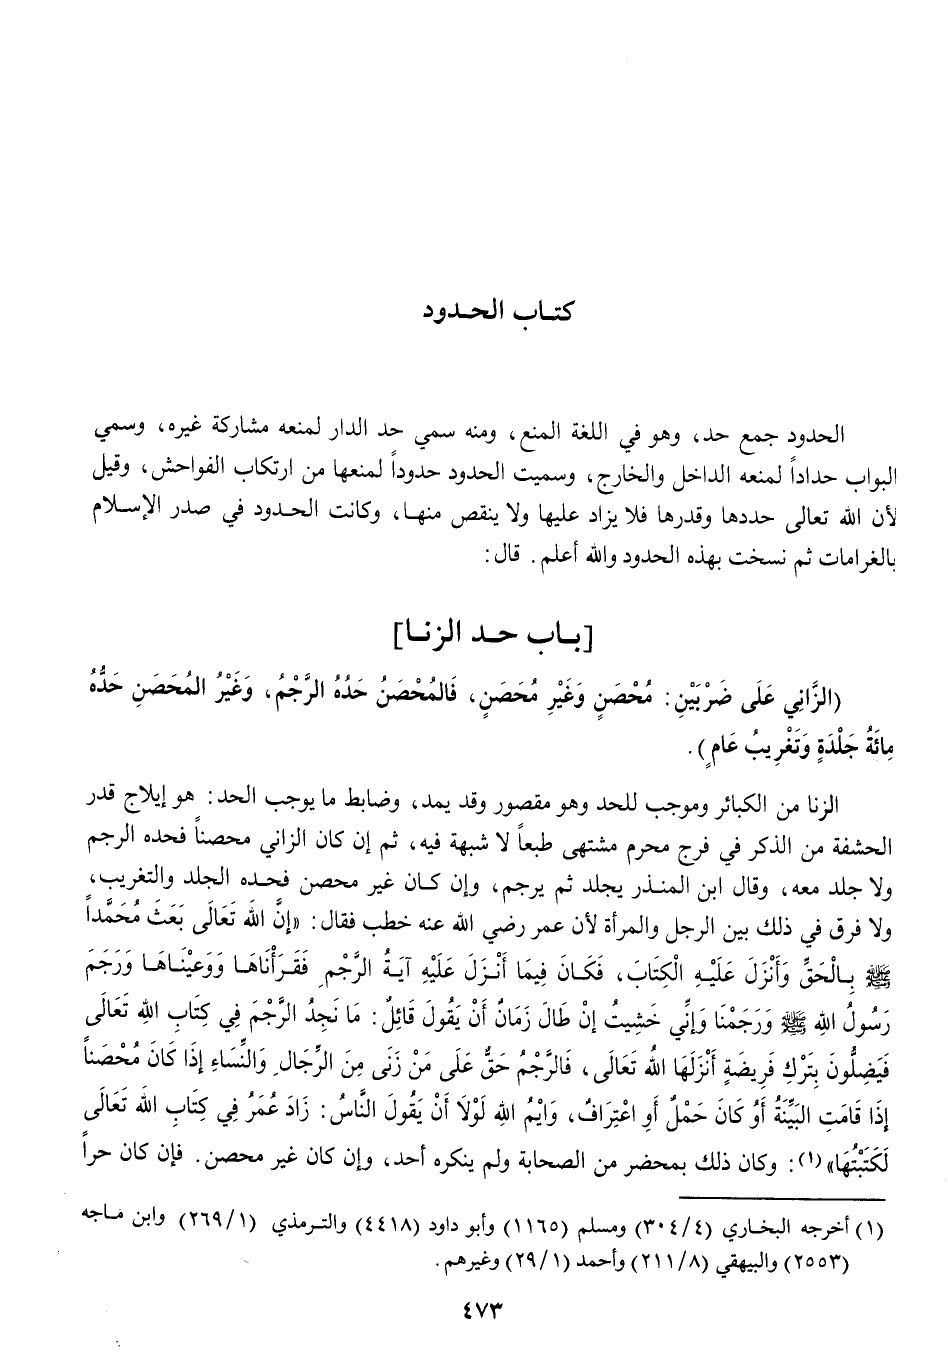 كتاب الحدود
الحدود جمع حد، وهو في اللغة المنع، ومنه سمي حد الدار لمنعه مشاركة غيره، وسمي
البواب حداداً لمنعه الداخل والخارج، وسميت الحدود حدوداً لمنعها من ارتكاب الفواحش، وقيل
لأن الله تعالى حددها وقدرها فلا يزاد عليها ولا ينقص منها، وكانت الحدود في صدر الإسلام
بالغرامات ثم نسخت بهذه الحدود والله أعلم. قال:
[باب حد الزنا]
(الزَّانِي عَلَى ضَرْبَيْنِ: مُحْصَنٍ وَغَيْرِ مُحَصَنٍ، فَالمُحْصَنُ حَدُهُ الرَّجْمُ، وَغَيْرُ المُحَصَنِ حَدُّهُ
مِائَةُ جَلْدَةٍ وَتَغْرِيبُ عَامٍ).
الزنا من الكبائر وموجب للحد وهو مقصور وقد يمد، وضابط ما يوجب الحد: هو إيلاج قدر
الحشفة من الذكر في فرج محرم مشتهى طبعاً لا شبهة فيه، ثم إن كان الزاني محصناً فحده الرجم
ولا جلد معه، وقال ابن المنذر يجلد ثم يرجم، وإن كان غير محصن فحده الجلد والتغريب،
ولا فرق في ذلك بين الرجل والمرأة لأن عمر رضي الله عنه خطب فقال: «إنَّ اللهَ تَعَالَى بَعَثَ مُحَمَّداً
ﷺ بِالْحَقِّ وَأَنْزَلَ عَلَيْهِ الْكِتَابَ، فَكَانَ فِيمَا أَنْزَلَ عَلَيْهِ آيَةُ الرَّجْمِ فَقَرَأْنَاهَا وَوَعَيْنَاهَا وَرَجَمَ
رَسُولُ اللهِ ﷺ وَرَجَمْنَا وَإنِّي خَشِيتُ إنْ طَالَ زَمَانٌ أَنْ يَقُولَ قَائِلٌ: مَا نَجِدُ الرَّجْمَ فِي كِتَابِ اللهِ تَعَالَى
فَيَضِلُّونَ بِتَرْكِ فَرِيضَةٍ أَنْزَلَهَا اللهُ تَعَالَى، فَالرَّجْمُ حَقٌّ عَلَى مَنْ زَنَى مِنَ الرِّجَالِ وَالنِّسَاءِ إذَا كَانَ مُحْصَناً
إذَا قَامَتِ البَيِّنَةُ أَوْ كَانَ حَمْلٌ أَوِ اعْتِرَافٌ، وَايْمُ اللهِ لَوْلَا أَنْ يَقُولَ النَّاسُ: زَادَ عُمَرُ فِي كِتَابِ اللهِ تَعَالَى
لَكَتَبْتُهَا»(١): وكان ذلك بمحضر من الصحابة ولم ينكره أحد، وإن كان غير محصن. فإن كان حراً
(١) أخرجه البخاري (٣٠٤/٤) ومسلم (١١٦٥) وأبو داود (٤٤١٨) والترمذي (٢٦٩/١) وابن ماجه
(٢٥٥٣) والبيهقي (٢١١/٨) وأحمد (٢٩/١) وغيرهم.
٤٧٣